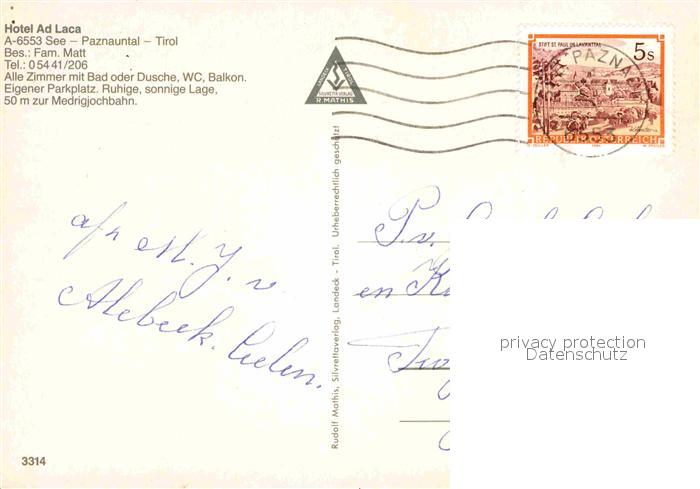 Hotel Ad Laca
A-6553 See – Paznauntal – Tirol
Bes.: Fam. Matt
Tel.: 0 54 41/206
Alle Zimmer mit Bad oder Dusche, WC, Balkon.
Eigener Parkplatz. Ruhige, sonnige Lage,
50 m zur Medrigjochbahn.
SILVRETTA VERLAG
R. MATHIS
STIFT ST. PAUL IM LAVANTTAL
5 S
REPUBLIK ÖSTERREICH
PAZNA
6553
Rudolf Mathis, Silvrettaverlag, Landeck - Tirol. Urheberrechtlich geschützt!
afz M. J. v
Alebeek. Ceelen.
en
privacy protection
Datenschutz
3314